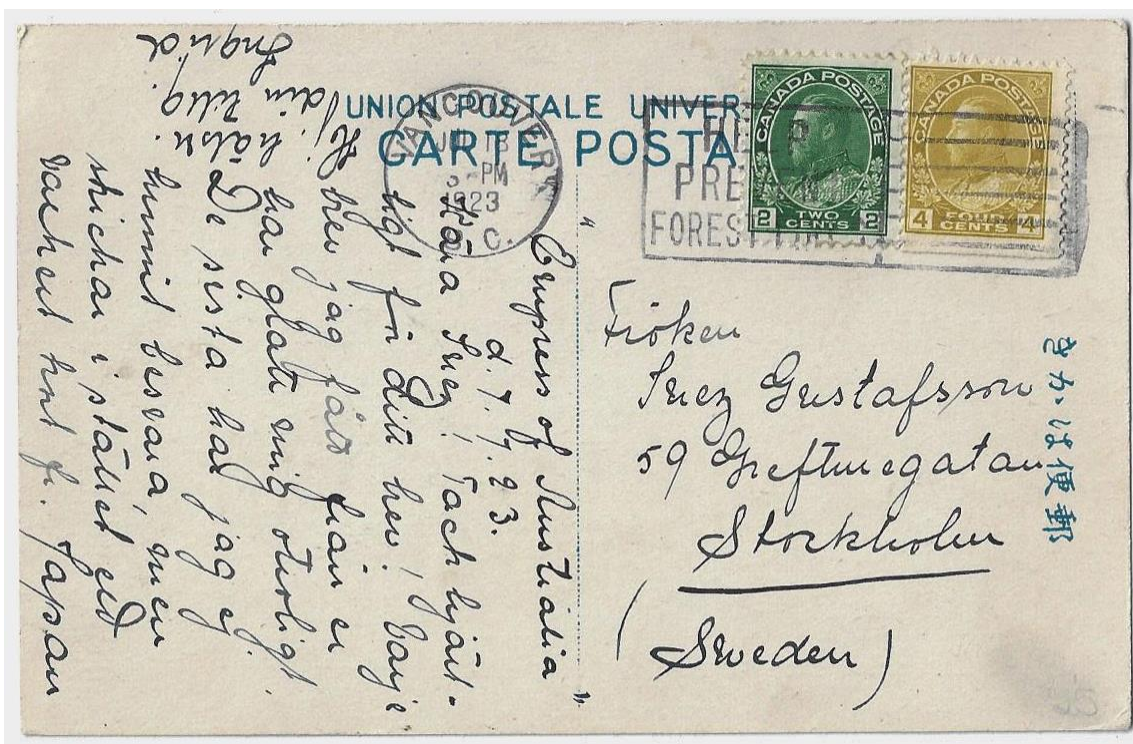 UNION POSTALE UNIVER
CARTE POSTA
VANCOUVER
3 PM
1923
B.C.
HELP
PREVENT
FOREST FIRES
CANADA POSTAGE
2 TWO CENTS 2
CANADA POSTAGE
4 FOUR CENTS 4
郵便はかき
Fröken
Inez Gustafsson
59 Greftmegatan
Stockholm
(Sweden)
"Empress of Australia"
d. 7/7. 23.
Kära Inez! Tack hjärt-
ligt för ditt brev! Varje
brev jag fått från er
har glatt mig otroligt.
De sista har jag ej
hunnit besvara, men
skickar i stället ett
vackert kort fr. Japan
Hj. hälsn.
din tillg.
Ingrid